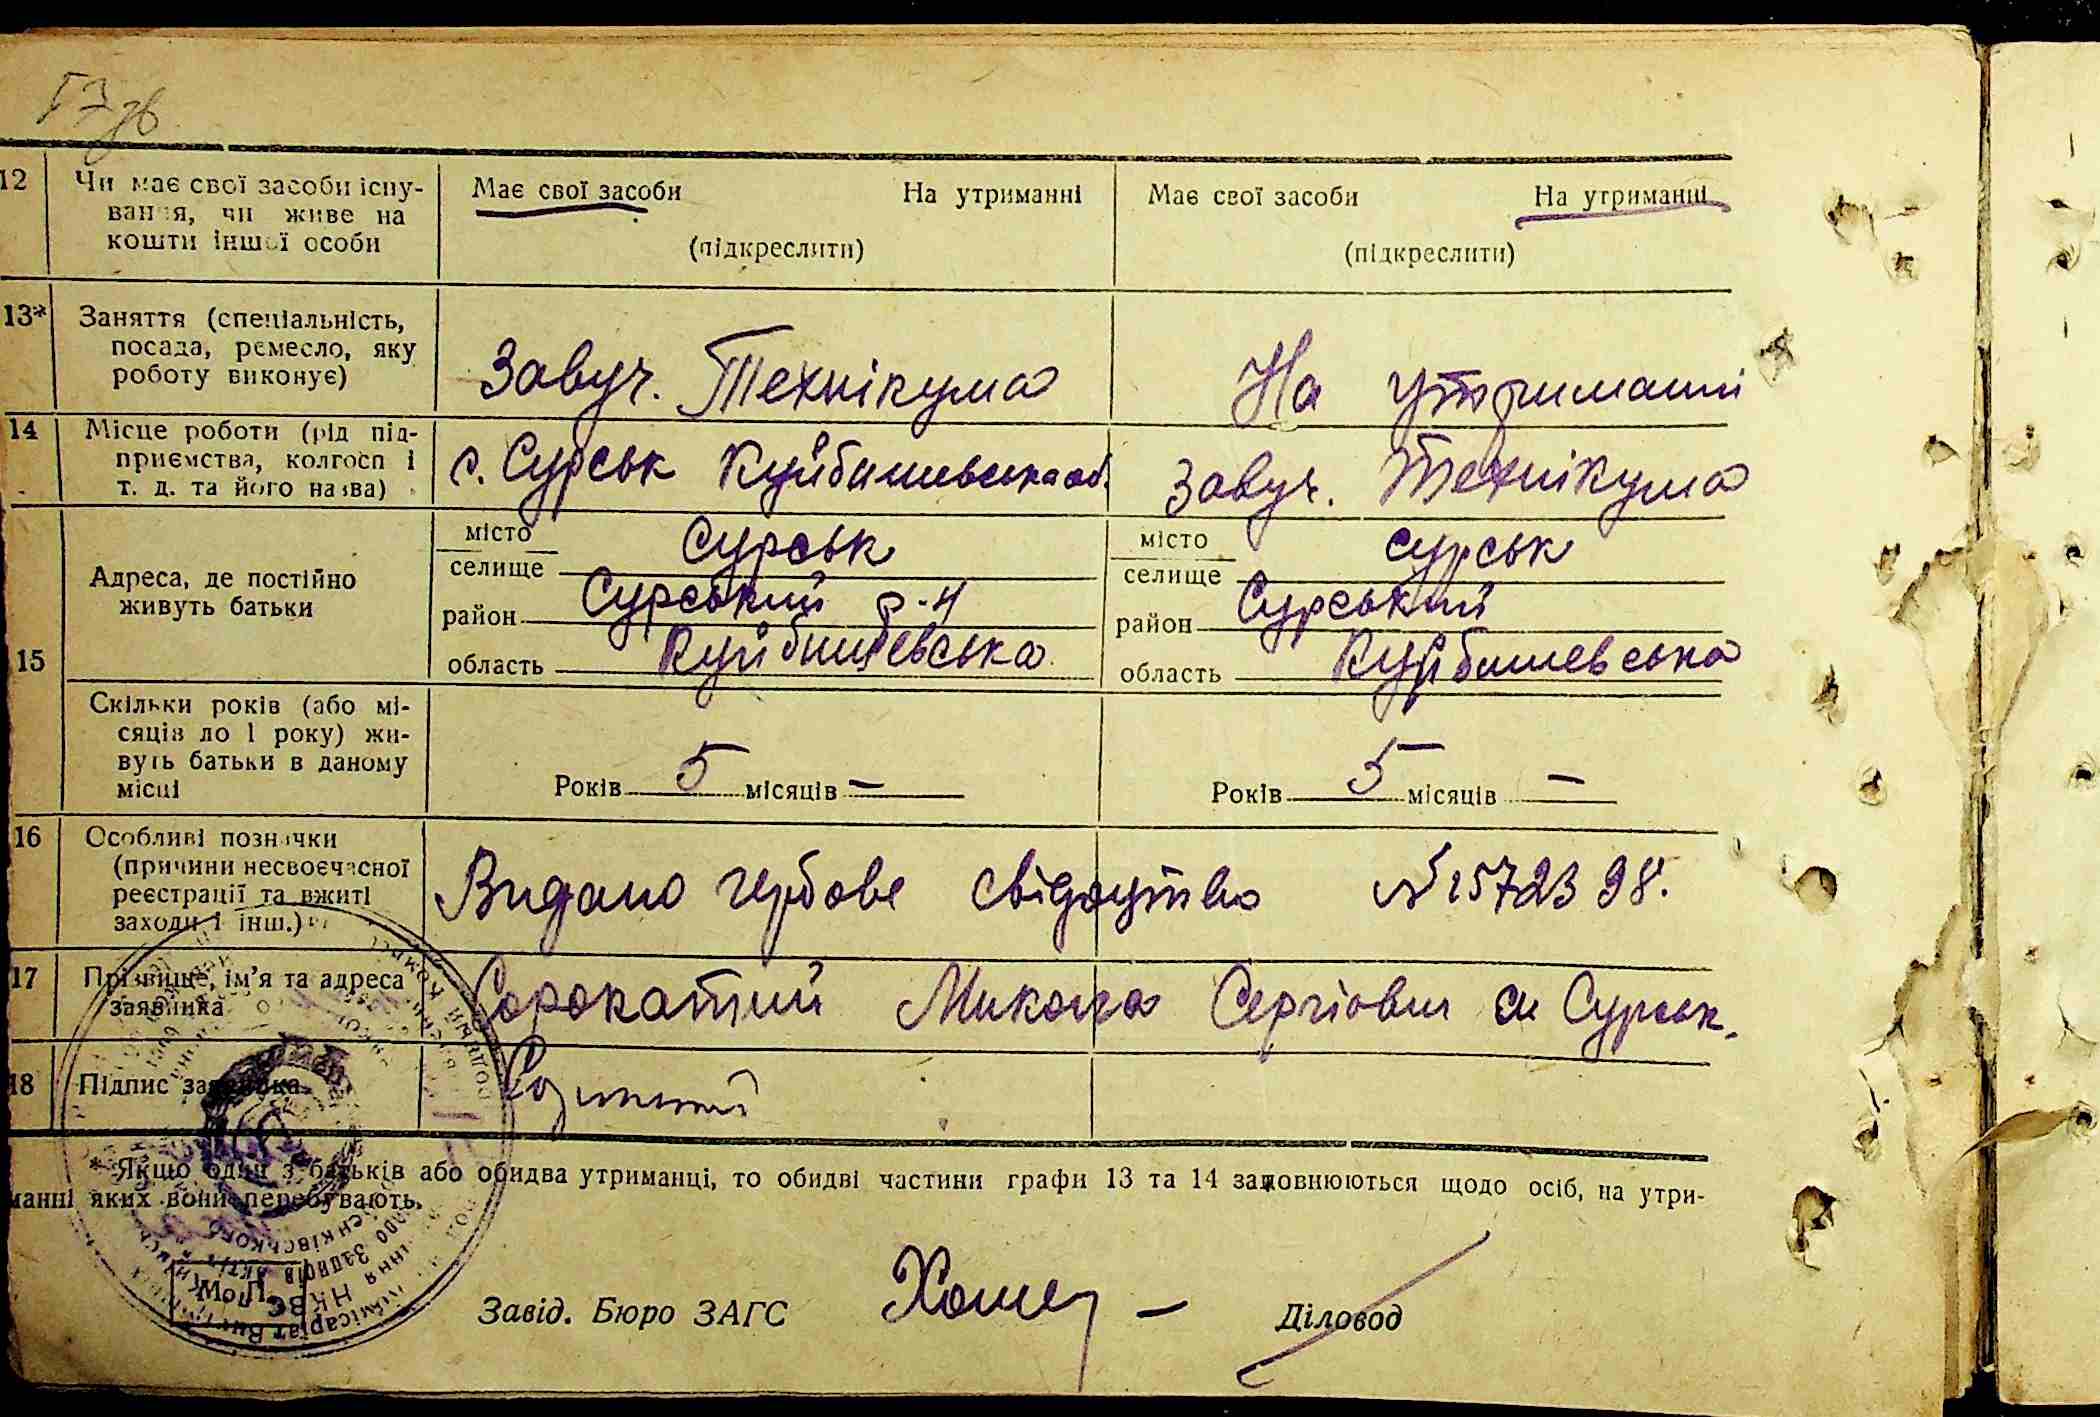 57зв
12 Чи має свої засоби існу- Має свої засоби На утриманні Має свої засоби На утриманні
вання, чи живе на
кошти іншої особи (підкреслити) (підкреслити)
13* Заняття (спеціальність,
посада, ремесло, яку Завуч. Технікума На утриманні
роботу виконує)
14 Місце роботи (рід під-
приємства, колгосп і с. Сурськ Куйбишевська об. Завуч. Технікума
т. д. та його назва)
місто Сурськ місто Сурськ
Адреса, де постійно селище селище
живуть батьки район Сурський р-н район Сурський
15 область Куйбишевська область Куйбишевська
Скільки років (або мі-
сяців до 1 року) жи-
вуть батьки в даному
місці Років 5 місяців — Років 5 місяців —
16 Особливі познички
(причини несвоєчасної
реєстрації та вжиті Видано гербове свідоцтво № 1572398.
заходи і інш.)
17 Прізвище, ім'я та адреса Сорокатий Микола Сергіович Сурськ.
заявника
18 Підпис заявника
* Якщо один з батьків або обидва утриманці, то обидві частини графи 13 та 14 заповнюються щодо осіб, на утри-
манні яких вони перебувають.
М. П.
Завід. Бюро ЗАГС Діловод